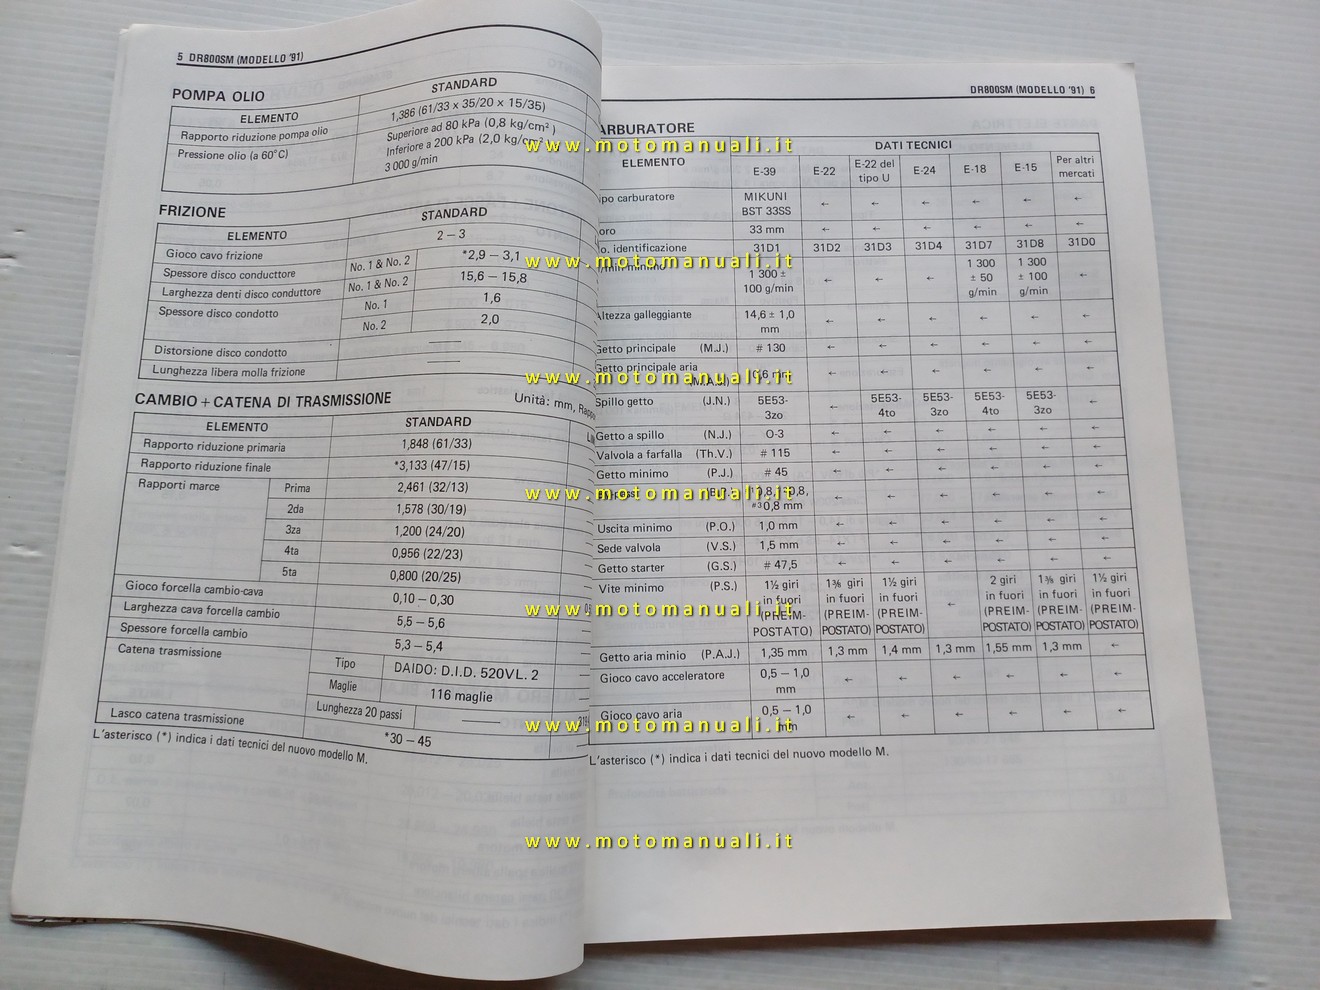 5 DR800SM (MODELLO '91)
POMPA OLIO
ELEMENTO STANDARD
Rapporto riduzione pompa olio 1,386 (61/33 x 35/20 x 15/35)
Pressione olio (a 60°C) Superiore ad 80 kPa (0,8 kg/cm² )
Inferiore a 200 kPa (2,0 kg/cm²
3 000 g/min
FRIZIONE
ELEMENTO STANDARD
Gioco cavo frizione 2 – 3
Spessore disco conducttore No. 1 & No. 2 *2,9 – 3,1
Larghezza denti disco conduttore No. 1 & No. 2 15,6 – 15,8
Spessore disco condotto No. 1 1,6
No. 2 2,0
Distorsione disco condotto ——
Lunghezza libera molla frizione ——
CAMBIO + CATENA DI TRASMISSIONE Unità: mm,
ELEMENTO STANDARD
Rapporto riduzione primaria 1,848 (61/33)
Rapporto riduzione finale *3,133 (47/15)
Rapporti marce Prima 2,461 (32/13)
2da 1,578 (30/19)
3za 1,200 (24/20)
4ta 0,956 (22/23)
5ta 0,800 (20/25)
Gioco forcella cambio-cava 0,10 – 0,30
Larghezza cava forcella cambio 5,5 – 5,6
Spessore forcella cambio 5,3 – 5,4
Catena trasmissione Tipo DAIDO: D.I.D. 520VL. 2
Maglie 116 maglie
Lunghezza 20 passi ——
Lasco catena trasmissione *30 – 45
L'asterisco (*) indica i dati tecnici del nuovo modello M.
DR800SM (MODELLO '91) 6
ARBURATORE
ELEMENTO DATI TECNICI
E-39 E-22 E-22 del tipo U E-24 E-18 E-15 Per altri mercati
ipo carburatore MIKUNI BST 33SS ← ← ← ← ← ←
oro 33 mm ← ← ← ← ← ←
o. identificazione 31D1 31D2 31D3 31D4 31D7 31D8 31D0
minimo 1 300 ± 100 g/min ← ← ← 1 300 ± 50 g/min 1 300 ± 100 g/min ←
Altezza galleggiante 14,6 ± 1,0 mm ← ← ← ← ← ←
Getto principale (M.J.) # 130 ← ← ← ← ← ←
Getto principale aria (M.A.J.) 0,6 mm ← ← ← ← ← ←
Spillo getto (J.N.) 5E53-3zo ← 5E53-4to 5E53-3zo 5E53-4to 5E53-3zo ←
Getto a spillo (N.J.) O-3 ← ← ← ← ← ←
Valvola a farfalla (Th.V.) # 115 ← ← ← ← ← ←
Getto minimo (P.J.) # 45 ← ← ← ← ← ←
0,8, 0,8, #3 0,8 mm ← ← ← ← ← ←
Uscita minimo (P.O.) 1,0 mm ← ← ← ← ← ←
Sede valvola (V.S.) 1,5 mm ← ← ← ← ← ←
Getto starter (G.S.) # 47,5 ← ← ← ← ← ←
Vite minimo (P.S.) 1½ giri in fuori (PREIM-POSTATO) 1⅜ giri in fuori (PREIM-POSTATO) 1½ giri in fuori (PREIM-POSTATO) ← 2 giri in fuori (PREIM-POSTATO) 1⅜ giri in fuori (PREIM-POSTATO) 1½ giri in fuori (PREIM-POSTATO)
Getto aria minio (P.A.J.) 1,35 mm 1,3 mm 1,4 mm 1,3 mm 1,55 mm 1,3 mm ←
Gioco cavo acceleratore 0,5 – 1,0 mm ← ← ← ← ← ←
Gioco cavo aria 0,5 – 1,0 mm ← ← ← ← ← ←
L'asterisco (*) indica i dati tecnici del nuovo modello M.
www.motomanuali.it
www.motomanuali.it
www.motomanuali.it
www.motomanuali.it
www.motomanuali.it
www.motomanuali.it
www.motomanuali.it